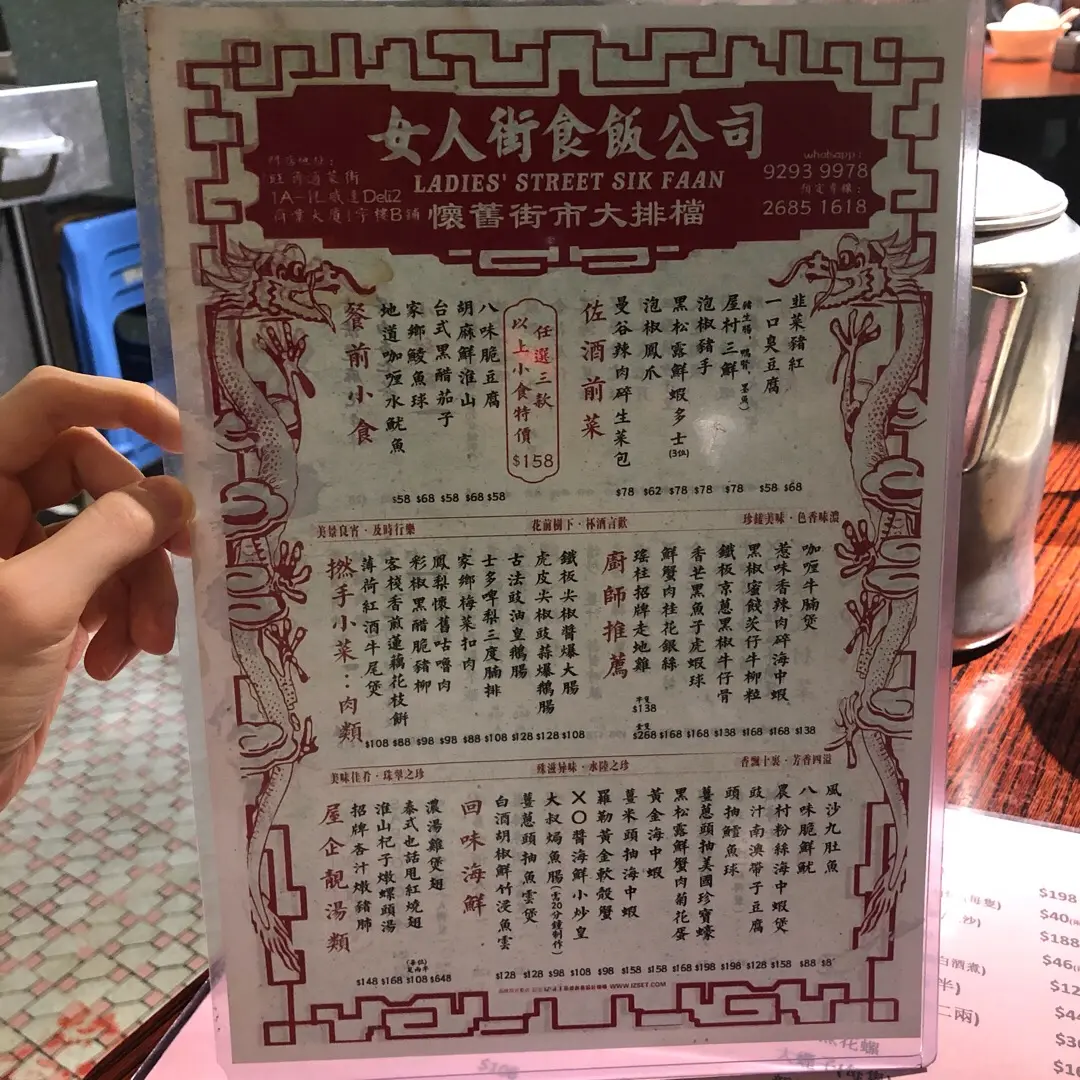 女人街食飯公司
LADIES' STREET SIK FAAN
懷舊街市大排檔
1A-1L威達Deli2
商業大廈1字樓B鋪
whatsapp:
9293 9978
2685 1618
餐前小食
地道咖喱水魷魚
家鄉鯪魚球
台式黑醋茄子
胡麻鮮淮山
八味脆豆腐
$58 $68 $58 $68 $58
任選三款
以上小食特價
$158
佐酒前菜
曼谷辣肉碎生菜包
泡椒鳳爪
黑松露鮮蝦多士(3位)
泡椒豬手
屋村三鮮
(豬生腸,鴨腎,墨魚)
一口臭豆腐
韭菜豬紅
$78 $62 $78 $78 $78 $58 $68
美景良宵・及時行樂
花前樹下・杯酒言歡
珍饈美味・色香味濃
撚手小菜:肉類
薄荷紅酒牛尾煲
客棧香煎蓮藕花枝餅
彩椒黑醋脆豬柳
鳳梨懷舊咕嚕肉
家鄉梅菜扣肉
士多啤梨三度腩排
古法豉油皇鵝腸
虎皮尖椒豉蒜爆鵝腸
鐵板尖椒醬爆大腸
$108 $88 $98 $98 $88 $108 $128 $128 $108
廚師推薦
瑤柱招牌走地雞
半隻
$138
全隻
鮮蟹肉桂花銀絲
香芒黑魚子虎蝦球
鐵板京蔥黑椒牛仔骨
黑椒蜜餞茨仔牛柳粒
惹味香辣肉碎海中蝦
咖喱牛腩煲
$268 $168 $168 $138 $168 $168 $138
美味佳肴・珠翠之珍
殊滋异味・水陸之珍
香飄十裏・芳香四溢
屋企靚湯類
招牌杏汁燉豬肺
淮山杞子燉螺頭湯
泰式也話甩紅燒翅
濃湯雞煲翅
$148 $168 $108 $648
回味海鮮
白酒胡椒鮮竹浸魚雲
薑蔥頭抽魚雲煲
大叔焗魚腸(需20分鐘制作)
XO醬海鮮小炒皇
羅勒黃金軟殼蟹
薑米頭抽海中蝦
黃金海中蝦
黑松露鮮蟹肉菊花蛋
薑蔥頭抽美國珍寶蠔
頭抽鱈魚球
豉汁南澳帶子豆腐
農村粉絲海中蝦煲
八味脆鮮魷
風沙九肚魚
$128 $128 $98 $108 $98 $158 $158 $168 $198 $198 $128 $158 $88
WWW.IZSET.COM
$198
$188